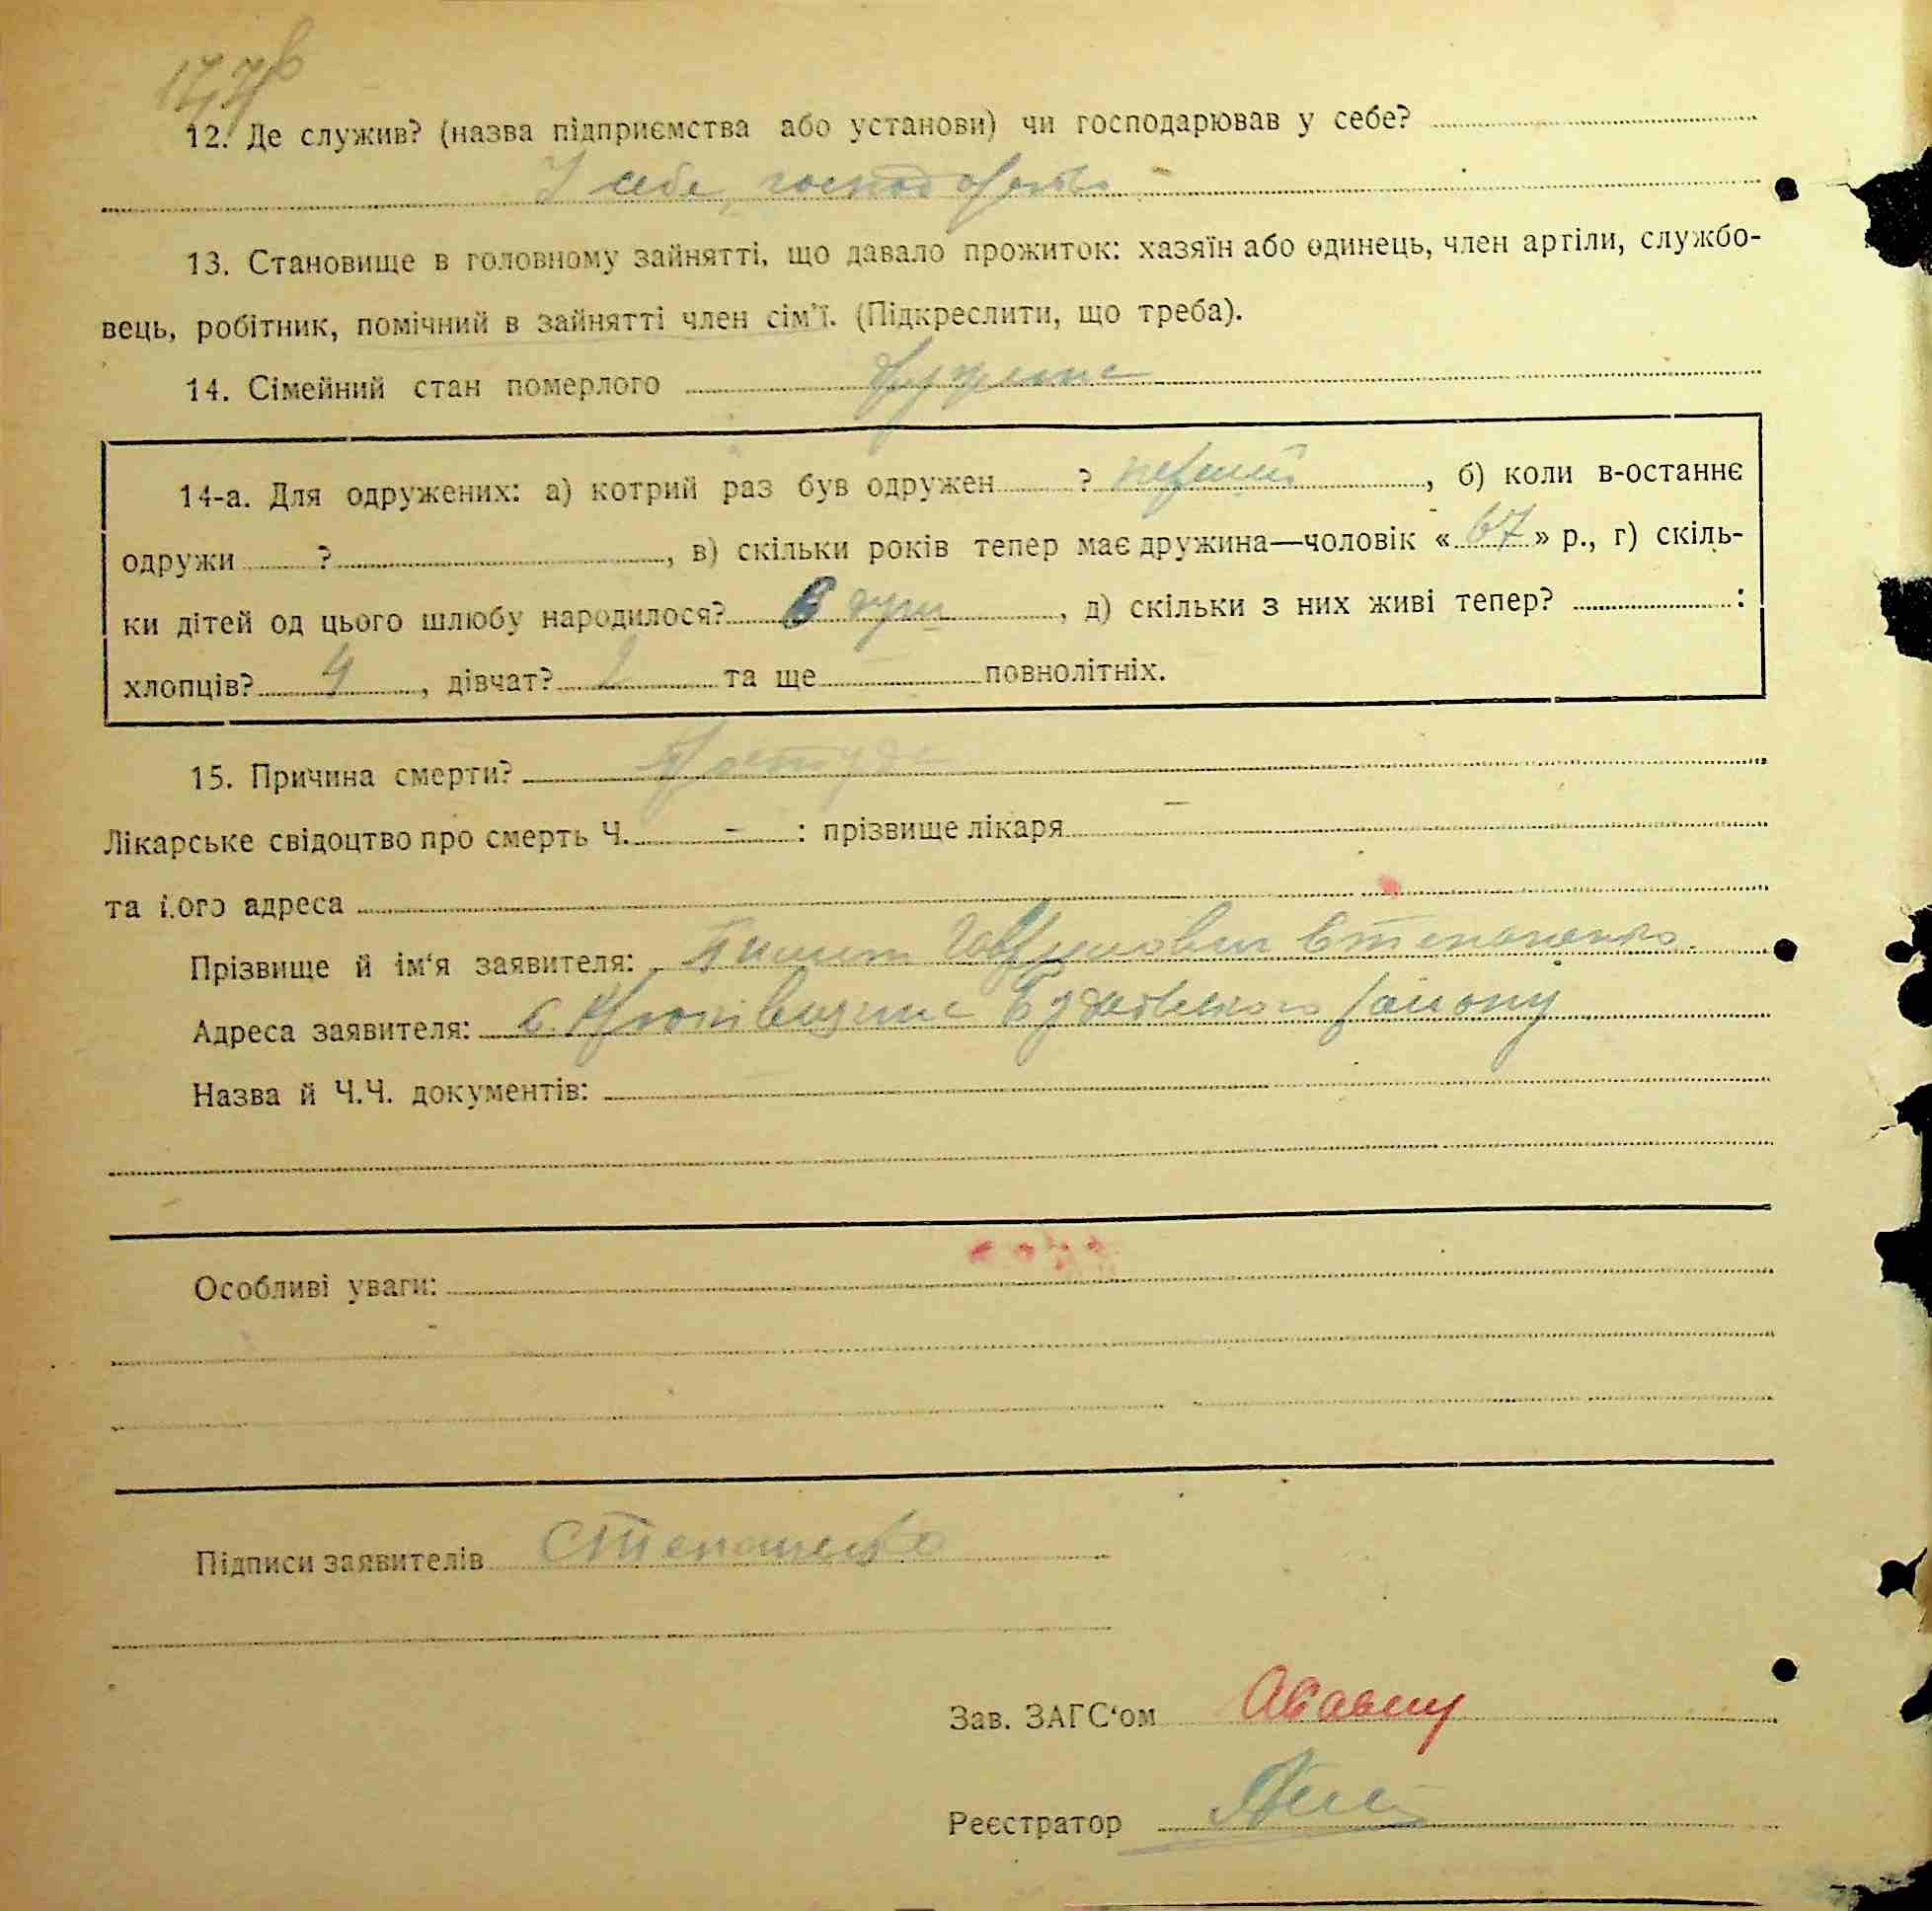 12. Де служив? (назва підприємства або установи) чи господарював у себе?
У себе, господарство
13. Становище в головному зайнятті, що давало прожиток: хазяїн або одинець, член артіли, службо-
вець, робітник, помічний в зайнятті член сім'ї. (Підкреслити, що треба).
14. Сімейний стан померлого
14-а. Для одружених: а) котрий раз був одружен ? перший, б) коли в-останнє
одружи ? , в) скільки років тепер має дружина—чоловік «67» р., г) скіль-
ки дітей од цього шлюбу народилося? 6 душ, д) скільки з них живі тепер? :
хлопців? 4, дівчат? 2 та ще повнолітніх.
15. Причина смерти? Простуда
Лікарське свідоцтво про смерть Ч. - : прізвище лікаря —
та його адреса
Прізвище й ім'я заявителя: Степаненко
Адреса заявителя: с. району
Назва й Ч.Ч. документів:
Особливі уваги:
Підписи заявителів Степаненко
Зав. ЗАГС'ом
Реєстратор